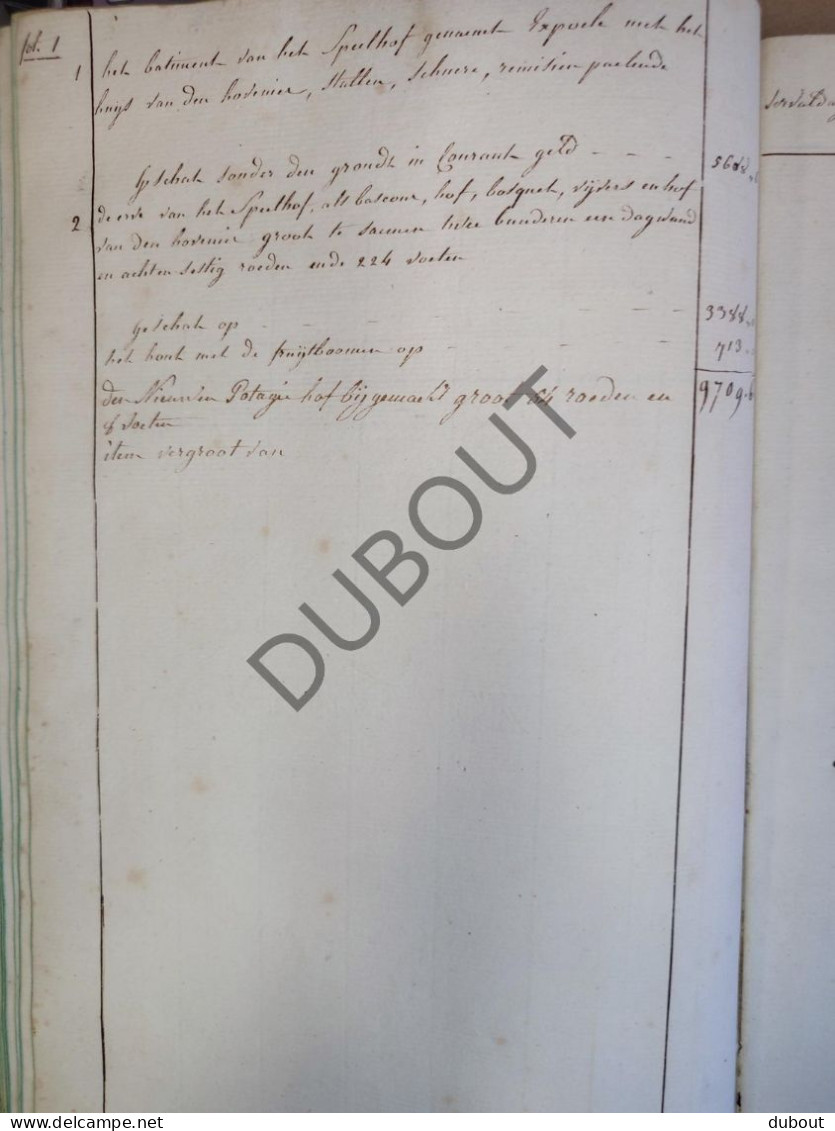 fol. 1
1 het batiment van het Speelhof genaemt Expoele met het
huys van den hovenier, Stallen, Schuere, remisien paelende
Geschat sonder den grondt in Courant geld - - - 5608
2 de erve van het Speelhof, als bascour, hof, bosquet, vijvers en hof
van den hovenier groot te saemen twee bunderen een dagwand
en achten sestig roeden ende 224 voeten
geschat op - - - - - - 3388
het hout met de fruijtboomen op - - - - 713
9709.6
den Nieuwen Potagie hof bijgemaekt groot 84 roeden en
8 voeten
item vergroot van
DUBOUT
DELCAMPE.NET
dubout